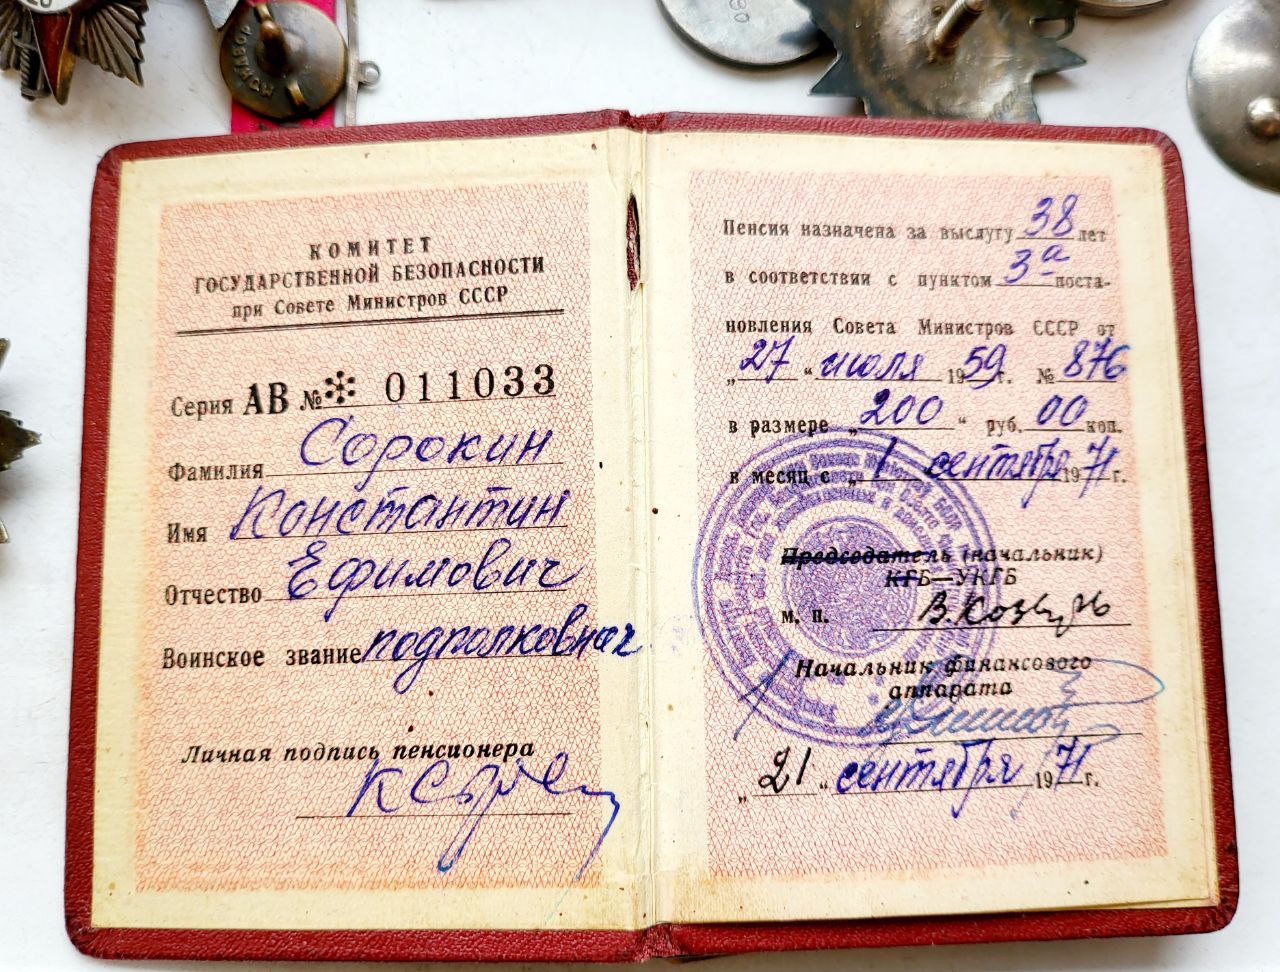 КОМИТЕТ
ГОСУДАРСТВЕННОЙ БЕЗОПАСНОСТИ
при Совете Министров СССР
Серия АВ №* 011033
Фамилия Сорокин
Имя Константин
Отчество Ефимович
Воинское звание подполковник
Личная подпись пенсионера
Пенсия назначена за выслугу 38 лет
в соответствии с пунктом 3а поста-
новления Совета Министров СССР от
„27“ июля 1959 г. № 876
в размере „200“ руб. 00 коп.
в месяц с „1 сентября 1971 г.
Председатель (начальник)
КГБ—УКГБ
м. п.
Начальник финансового
аппарата
„21“ сентября 1971 г.